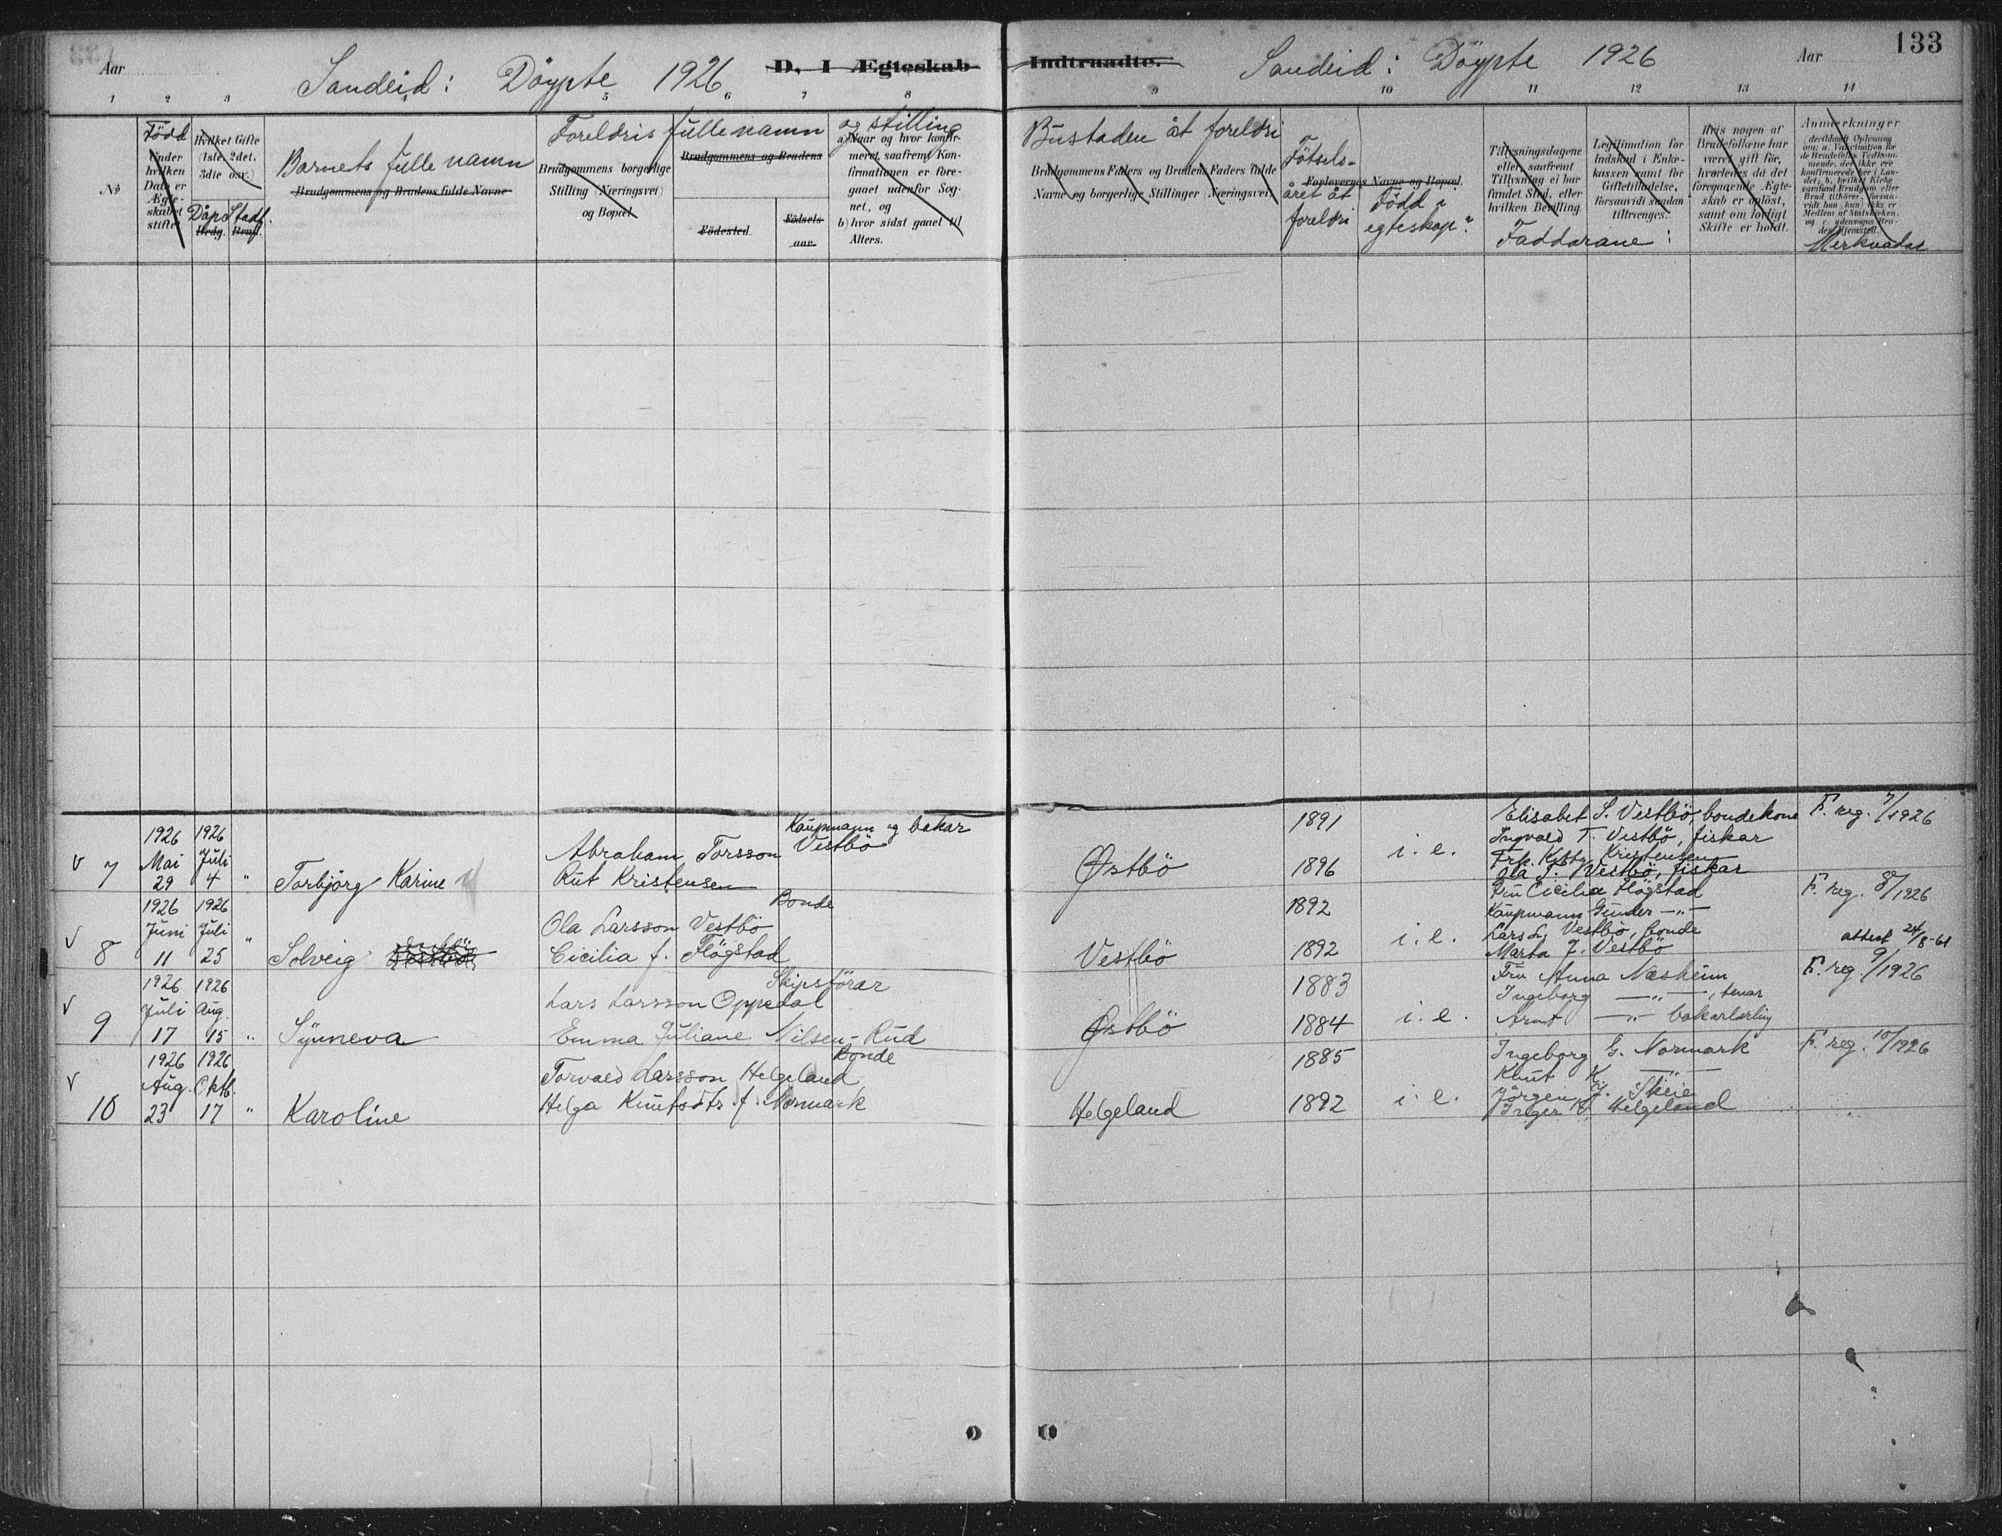 133
Aar
Sandeid: Döypte 1926
D. I Ægteskab
Indtraadte.
Sandeid: Döypte 1926
Aar
1 2 3 4 5 6 7 8 9 10 11 12 13 14
No
Född
Under hvilken Dato er Ægteskabet stiftet
Hvilket Gifte (1ste, 2det, 3die osv.)
Döpt Stadf.
Brdg. Brud.
Barnets fulle namn
Brudgommens og Brudens fulde Navne
Foreldris fulle namn og stilling
Brudgommens borgerlige Stilling (Næringsvei) og Bopæl
Brudgommens og Brudens
Födested.
Födselsaar.
a) Naar og hvor konfirmeret, saafremt Konfirmationen er foregaaet udenfor Sognet, og
b) hvor sidst gaaet til Alters.
Bustaden åt foreldri
Brudgommens Faders og Brudens Faders fulde Navne og borgerlige Stillinger (Næringsvei).
Fötselsåret åt foreldri
Forlovernes Navne og Bopæl.
Född i egteskap?
Tillysningsdagene eller, saafremt Tillysning ei har fundet Sted, efter hvilken Bevilling.
Faddarane:
Legitimation for Indskud i Enkekassen samt for Giftetilladelse, forsaavidt saadan tiltrænges.
Hvis nogen af Brudefolkene har været gift før, hvorledes da det foregaaende Ægteskab er opløst, samt om lovligt Skifte er holdt.
Anmerkninger
Merknader
7
1926 Mai 29
1926 Juli 4
"
Torbjörg Karine
Kaupmann og bakar
Abraham Torsson Vestbö
Rut Kristensen
Østbö
1891
1896
i. e.
Elisabet S. Vestbö, bondekone
Ingvald T. Vestbö, fiskar
Frk. Kitty Kristensen
Ola T. Vestbö, fiskar
F. reg. 7/1926
8
1926 Juni 11
1926 Juli 25
"
Solveig
Bonde
Ola Larsson Vestbö
Cicilia f. Flögstad
Vestbö
1892
1892
i. e.
Fru Cicilia Flögstad
Kaupmann Gunder —"—
Lars L. Vestbö, bonde
Marta J. Vestbö
F. reg. 8/1926
attest 24/8-61
9
1926 Juli 17
1926 Aug. 15
"
Synneva
Skipsförar
Lars Larsson Oppedal
Emma Juliane Nilsen-Rud
Østbö
1883
1884
i. e.
Fru Anna Næsheim
Ingeborg —"—, tenar
Arnt —"— bakarlærling
F. reg. 9/1926
10
1926 Aug. 23
1926 Oktb. 17
"
Karoline
Bonde
Torvald Larsson Helgeland
Helga Knutsdtr. f. Normark
Helgeland
1885
1892
i. e.
Ingeborg G. Normark
Knut K. —"—
Jörgen J. Skeie
Inger Helgeland
F. reg. 10/1926